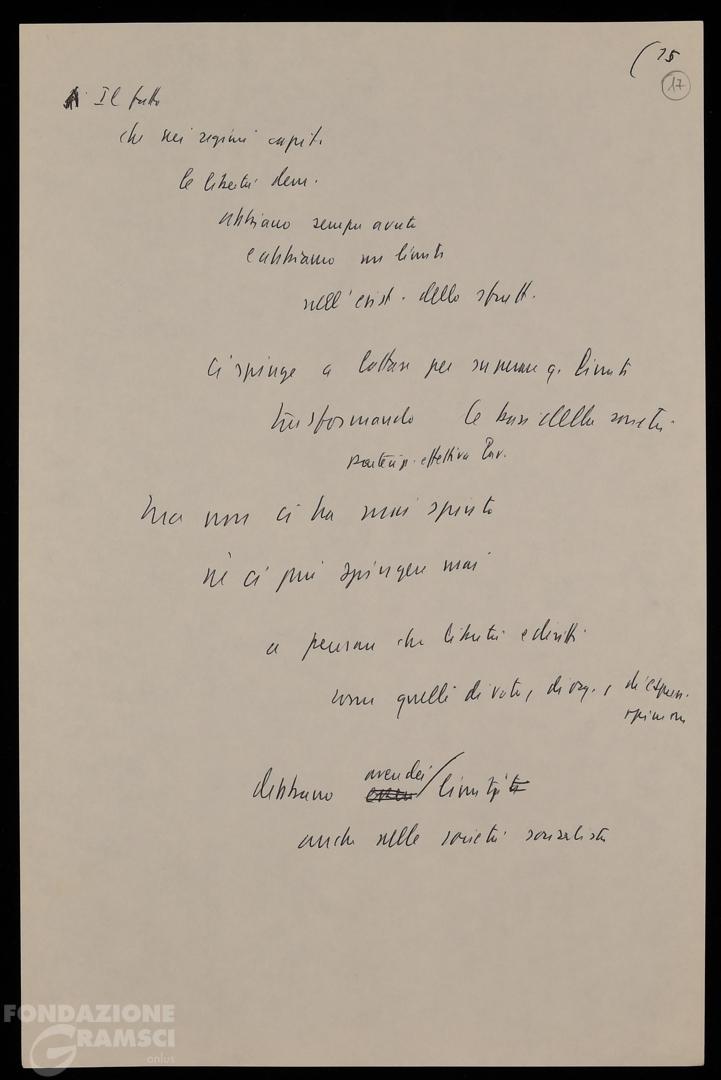 (15
17
Il fatto
che nei regimi capit.
le libertà dem.
abbiano sempre avuto
e abbiano un limite
nell'esist. dello sfrutt.
ci spinge a lottare per superare q. limiti
trasformando le basi della società
partecip. effettiva lav.
ma non ci ha mai spinto
nè ci può spingere mai
a pensare che libertà e diritti
come quelli di voto, di org., di espress.
opinione
debbano avere dei limiti
anche nelle società socialiste
FONDAZIONE
GRAMSCI
onlus